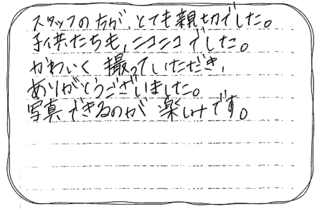 スタッフの方が、とても親切でした。
子供たちも、ニコニコでした。
かわいく撮っていただき、
ありがとうございました。
写真できるのが楽しみです。